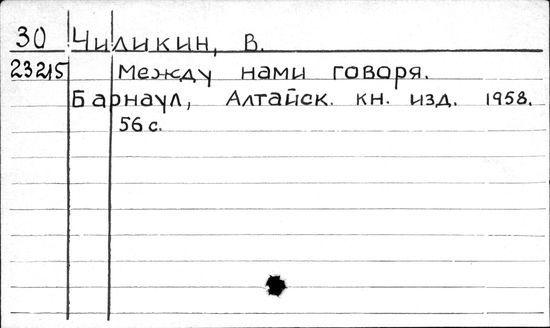 30 Чиликин, В.
23215 Между нами говоря.
Барнаул, Алтайск. кн. изд. 1958.
56 с.